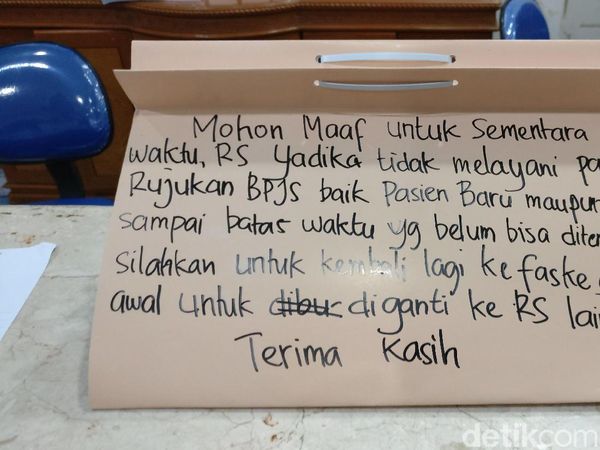 Mohon Maaf untuk Sementara
waktu, RS Yadika tidak melayani pa
Rujukan BPJS baik Pasien Baru maupun
sampai batas waktu yg belum bisa diten
Silahkan untuk kembali lagi ke faske
awal untuk dibur diganti ke RS lain
Terima Kasih
detikcom